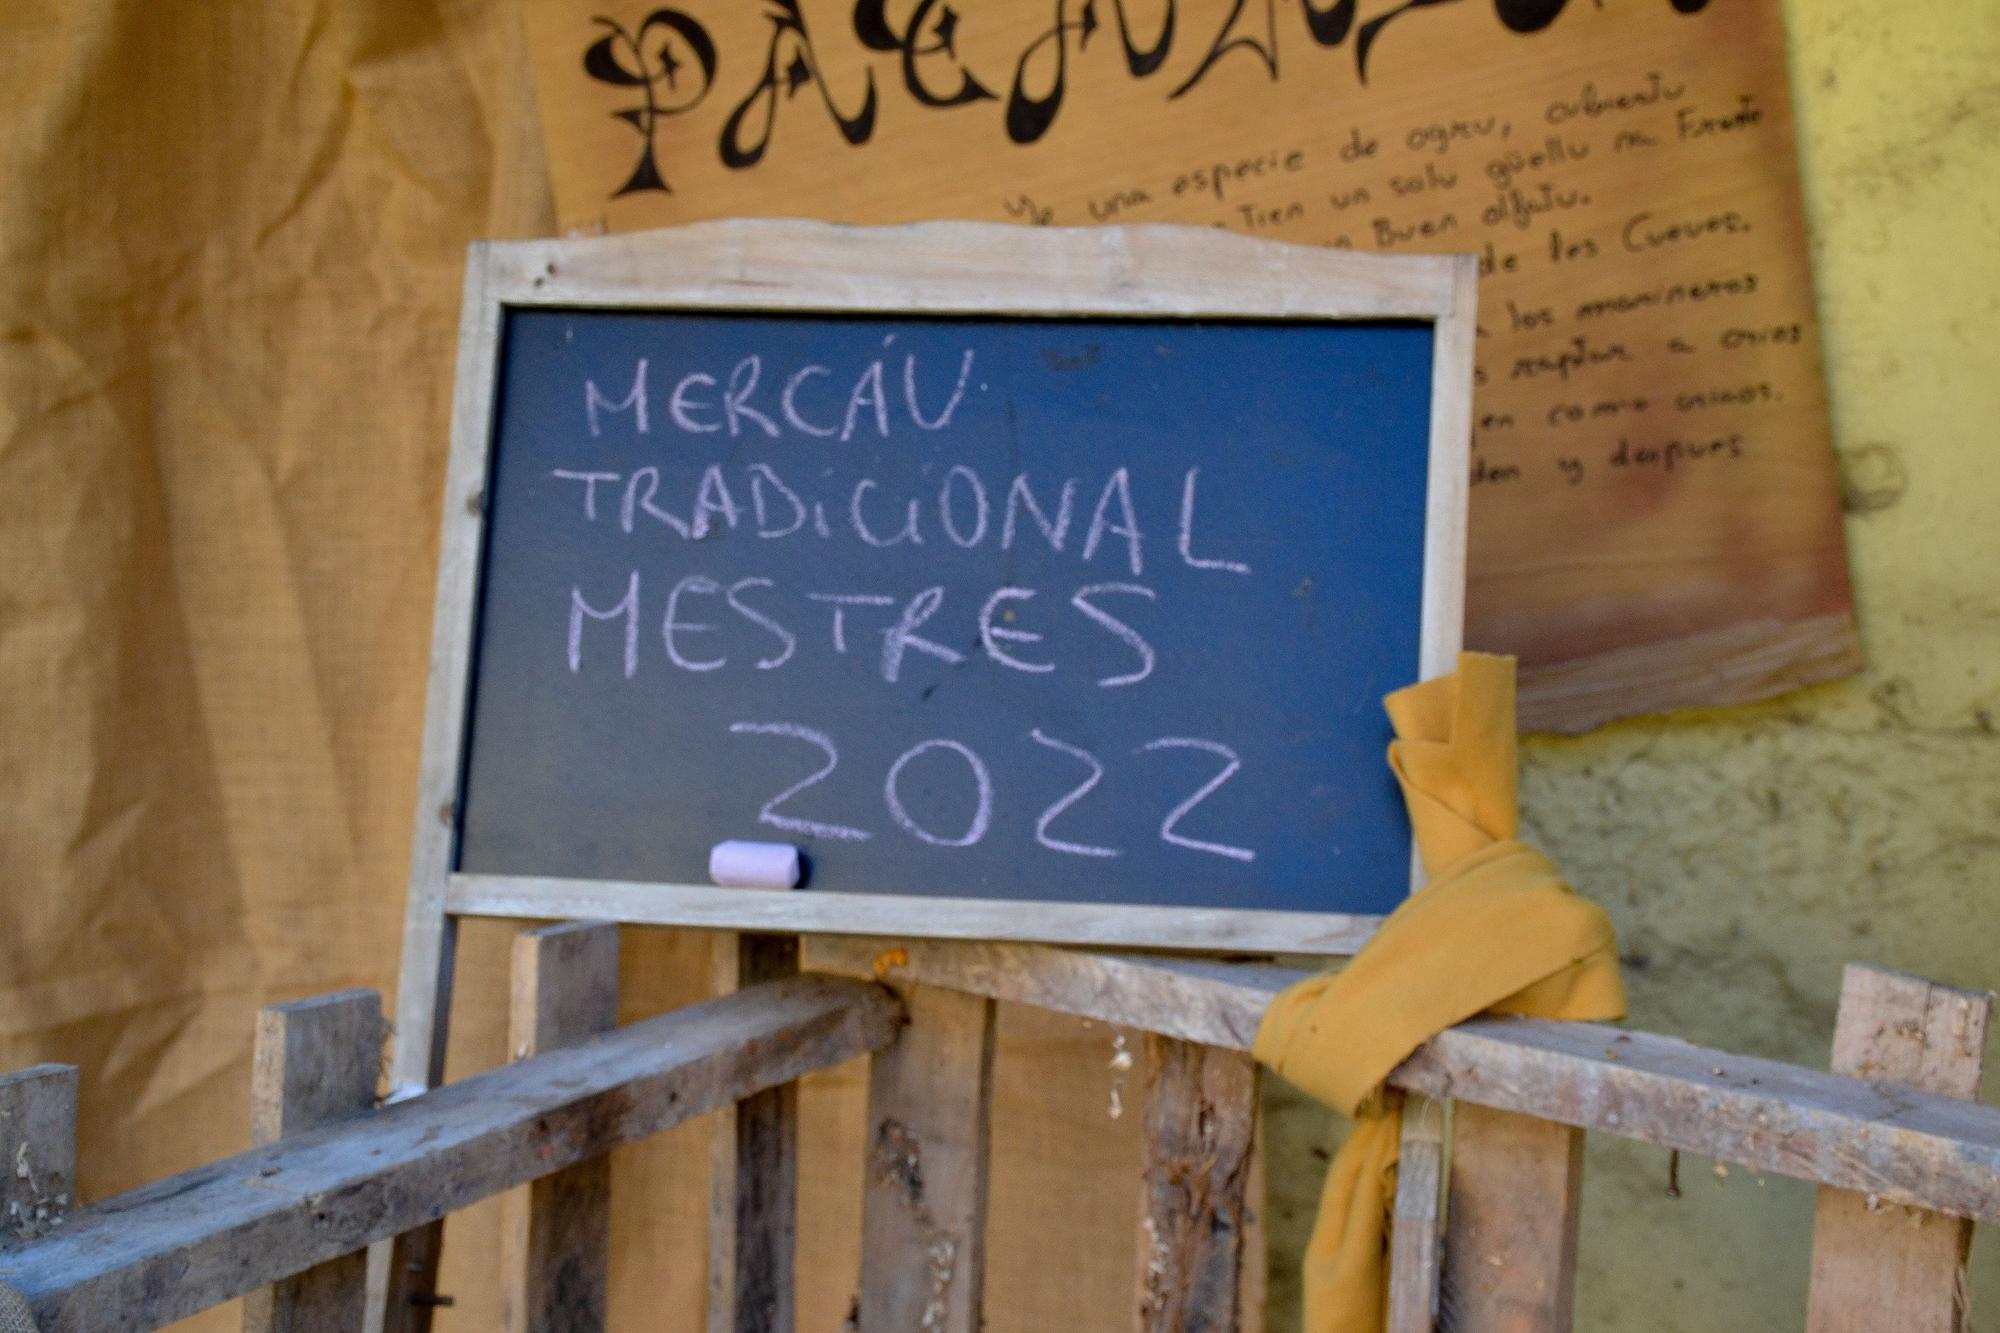 Ye una especie de ogru, cubiertu
Tien un solu güellu na Frente
Buen olfatu.
de les Cueves.
los marineros
raptar a crios
como
y despues
MERCÁU
TRADICIONAL
MESTRES
2022